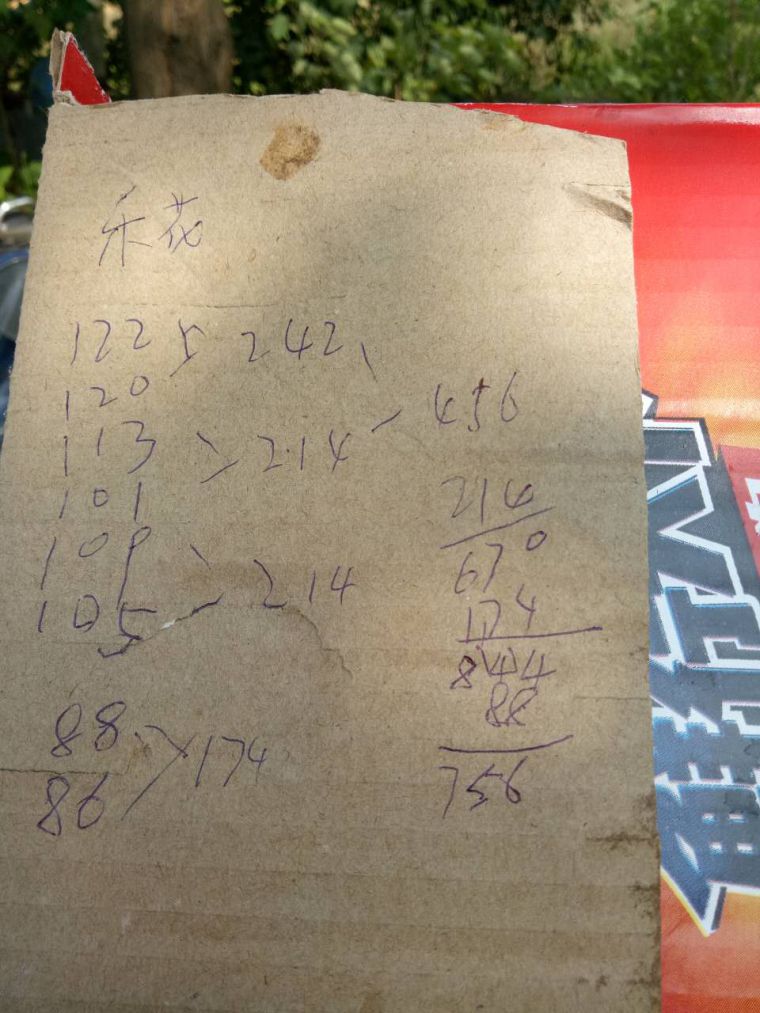 禾花
122 > 242、
120
113 > 214 - 456
101
109 > 214
105
214
670
174
844
88
756
88 > 174
86